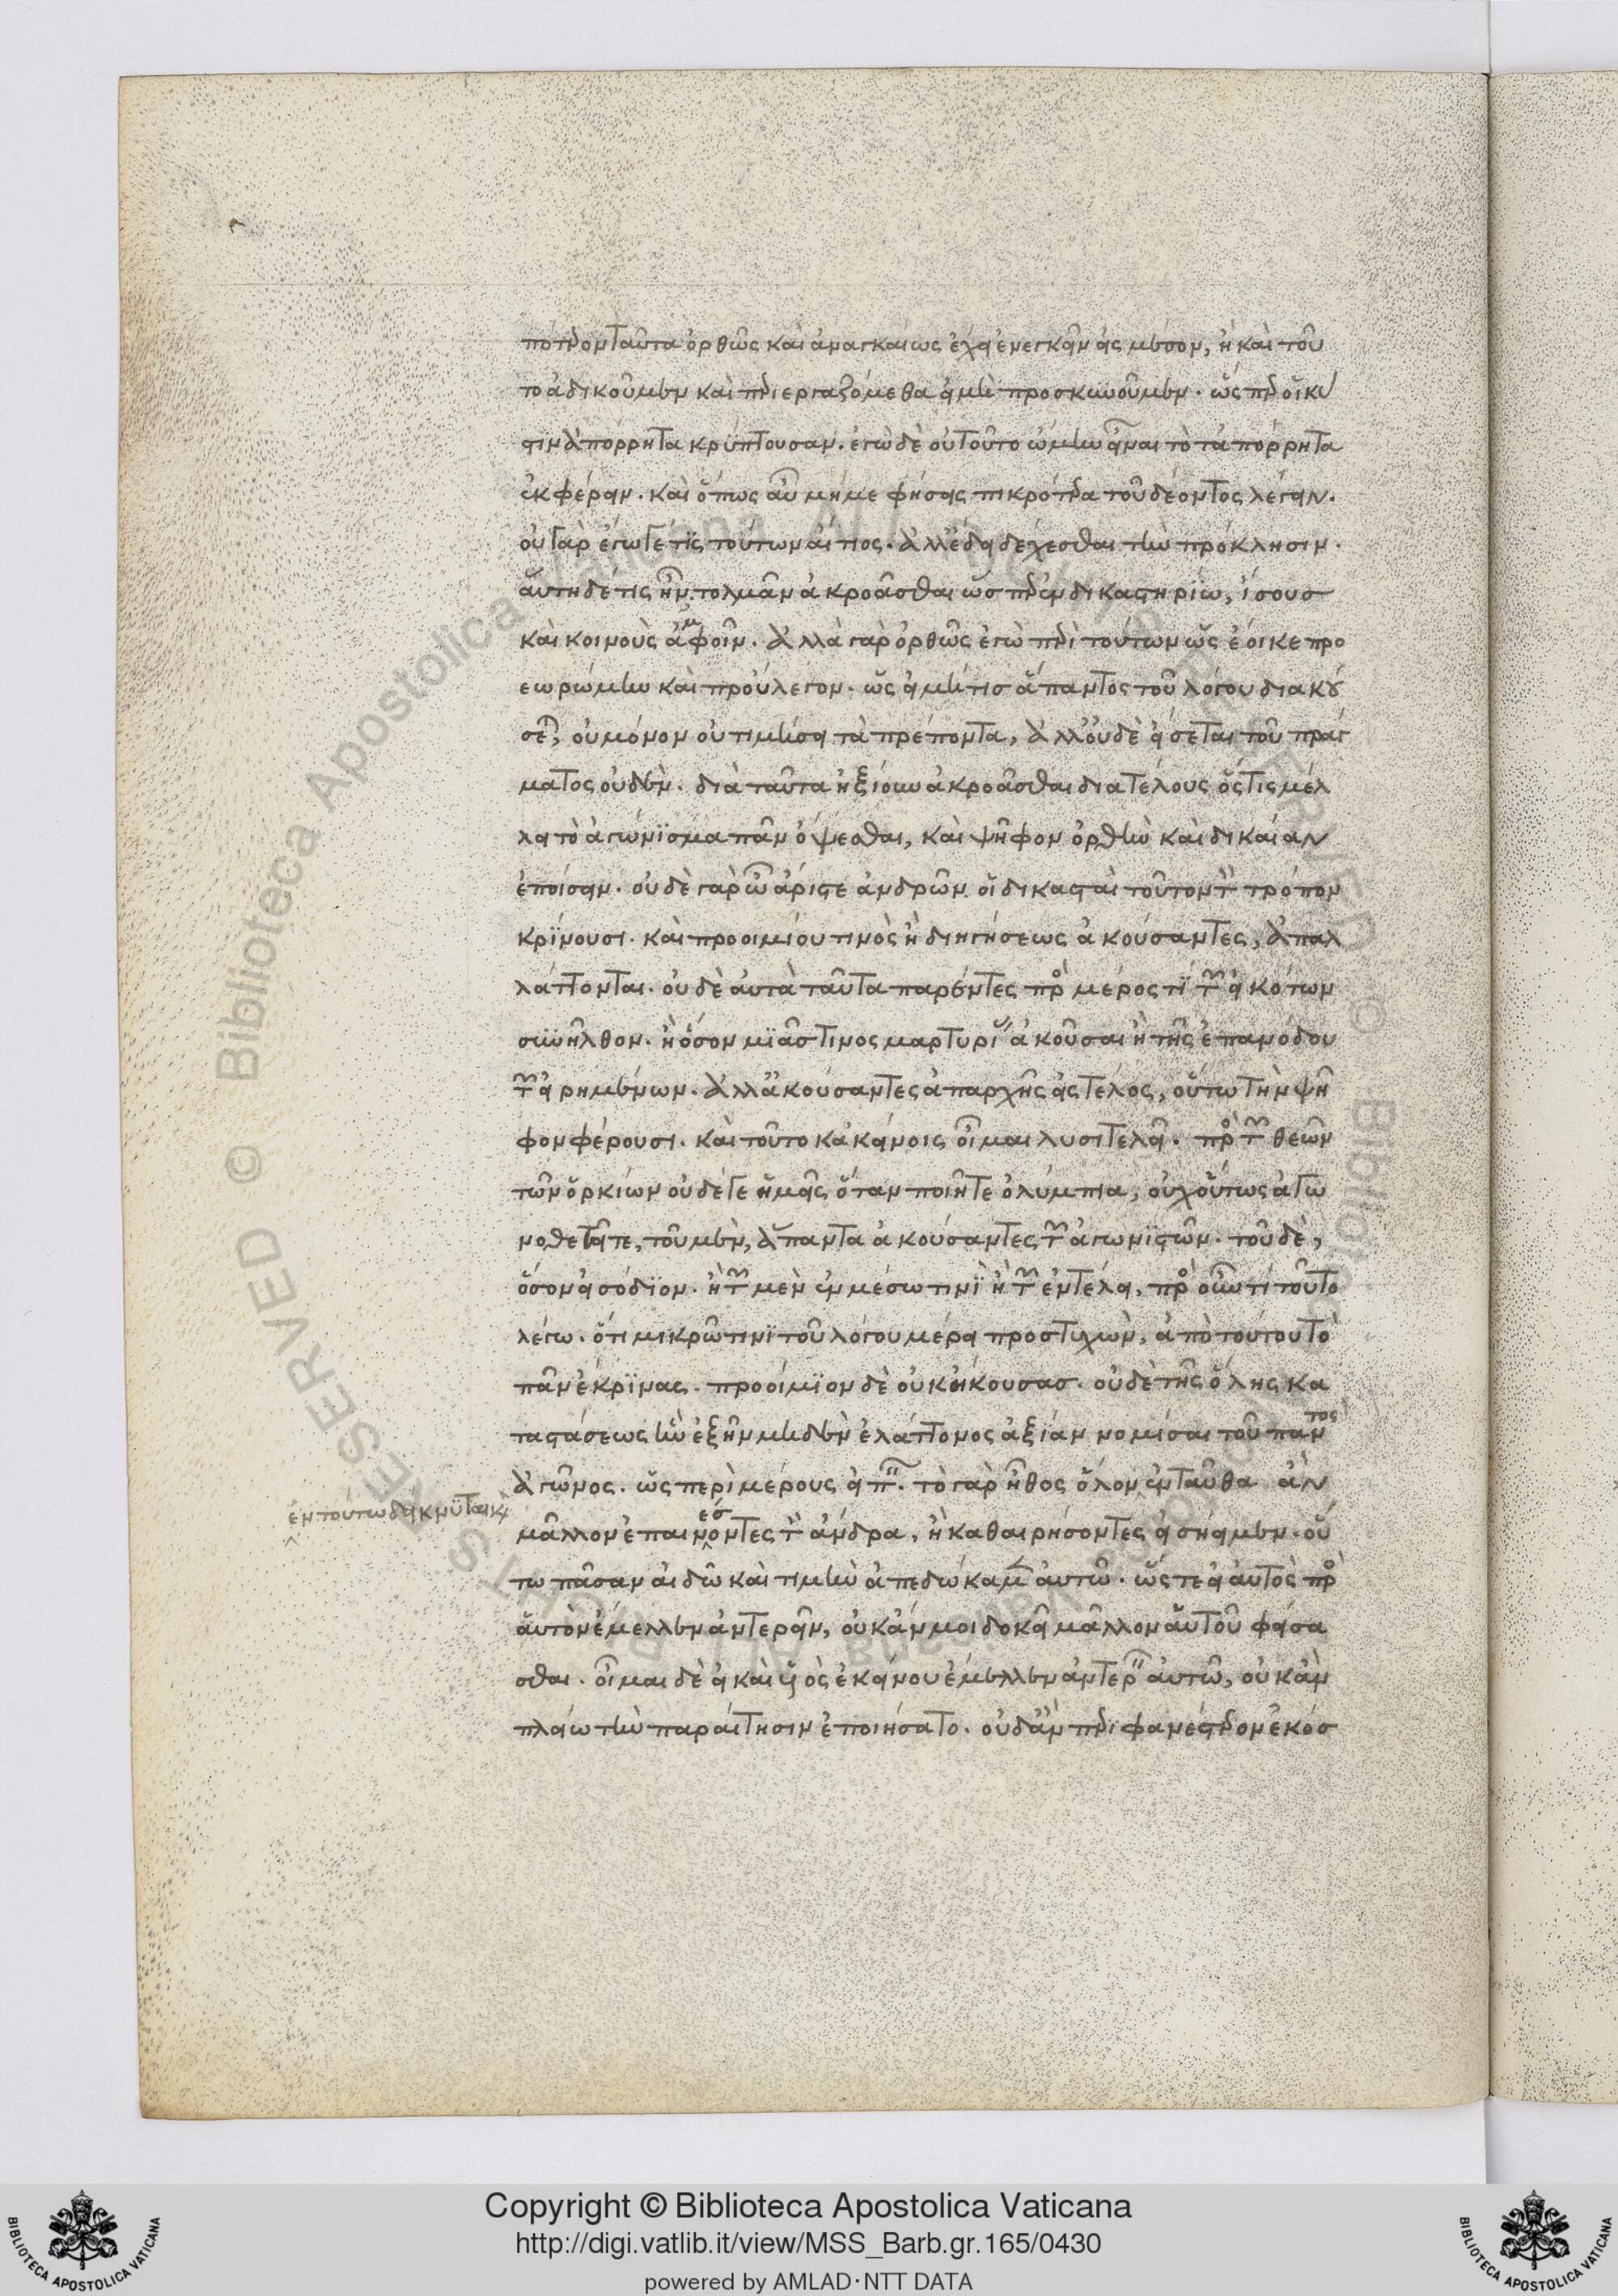 πότερον ταῦτα ὀρθῶς καὶ ἀναγκαίως ἔχει ἐνεγκεῖν εἰς μέσον, ἢ καὶ τοῦ
το ἀδικοῦμεν καὶ περιεργαζόμεθα εἰ μὴ προσκυνοῦμεν. ὥσπερ οἴκυ
τιν ἀπόρρητα κρύπτουσαν. ἐγὼ δὲ οὐ τοῦτο ᾤμην εἶναι τὸ τἀπόρρητα
ἐκφέρειν. καὶ ὅπως αὖ μή με φήσεις πικρότερα τοῦ δέοντος λέγειν.
οὐ γὰρ ἔγωγέ τις τούτων αἴτιος. ἀλλ' ἔδει δέχεσθαι τὴν πρόκλησιν.
αὕτη δέ τις ἦν. τολμᾶν ἀκροᾶσθαι ὥσπερ ἐν δικαστηρίω, ἴσους
καὶ κοινοὺς ἀμφοῖν. ἀλλὰ γὰρ ὀρθῶς ἐγὼ περὶ τούτων ὡς ἔοικε προ
εωρώμην καὶ προύλεγον. ὡς εἰ μή τις ἅπαντος τοῦ λόγου διακού
σεται, οὐ μόνον οὐ τιμήσει τὰ πρέποντα, ἀλλ' οὐδὲ εἴσεται τοῦ πράγ
ματος οὐδέν. διὰ ταῦτα ἠξίουν ἀκροᾶσθαι διατέλους ὅστις μέλ
λει τὸ ἀγώνϊσμα πᾶν ὄψεσθαι, καὶ ψῆφον ὀρθὴν καὶ δικαίαν
ἐποίσειν. οὐδὲ γὰρ ὦ ἄριστε ἀνδρῶν οἱ δικασταὶ τοῦτον τὸν τρόπον
κρίνουσι. καὶ προοιμίου τινὸς ἢ διηγήσεως ἀκούσαντες, ἀπαλ
λάττονται. οὐδὲ αὐτὰ ταῦτα παρέντες πρὸς μέρος τι τῶν εἰκότων
συνῆλθον. ἢ ὅσον μιᾶς τινος μαρτυρίας ἀκοῦσαι ἢ τῆς ἐπανόδου
τῶν εἰρημένων. ἀλλ' ἀκούσαντες ἀπαρχῆς εἰς τέλος, οὕτω τὴν ψῆ
φον φέρουσι. καὶ τοῦτο κἀκείνοις οἶμαι λυσιτελεῖ. πρὸς τῶν θεῶν
τῶν ὁρκίων οὐδέ γε ἡμεῖς ὅταν ποιῆτε ὀλύμπια, οὐχ οὕτως ἀγω
νοθετεῖτε, τοῦ μὲν, ἅπαντα ἀκούσαντες τῶν ἀγωνϊστῶν. τοῦ δὲ,
ὅσον εἰσόδϊον. ἢ τῶν μὲν ἐν μέσω τινῒ ἢ τῶν ἐντέλει. πρὸς οὖν τί τοῦτο
λέγω. ὅτι μικρῶ τινῒ τοῦ λόγου μέρει προστυχὼν, ἀπὸ τούτου τὸ
πᾶν ἔκρϊνας. προοίμϊον δὲ οὐκ ἤκουσας. οὐδὲ τῆς ὅλης κα
ταστάσεως ἣν ἐξῆν μηδὲν ἐλάττονος ἀξίαν νομίσαι τοῦ παντὸς
ἀγῶνος. ὡς περὶ μέρους εἰπεῖν. τὸ γὰρ ἦθος ὅλον ἐνταῦθα ἀν
ἐν τούτω δείκνυται καὶ
μᾶλλον ἐπαινέσοντες τὸν ἄνδρα, ἢ καθαιρήσοντες εἰσήειμεν. οὕ
τω πᾶσαν αἰδῶ καὶ τιμὴν ἀπεδώκαμεν αὐτῶ. ὥστε εἰ αὐτὸς πρὸς
αὑτὸν ἔμελλεν ἀντερεῖν, οὐκ ἄν μοι δοκεῖ μᾶλλον αὑτοῦ φείσα
σθαι. οἶμαι δὲ εἰ καὶ υἱὸς ἐκείνου ἔμελλεν ἀντερεῖν αὐτῶ, οὐκ ἂν
πλείω τὴν παραίτησιν ἐποιήσατο. οὐδ' ἂν περιφανέστερον ἐκόσ
Copyright © Biblioteca Apostolica Vaticana
http://digi.vatlib.it/view/MSS_Barb.gr.165/0430
powered by AMLAD·NTT DATA